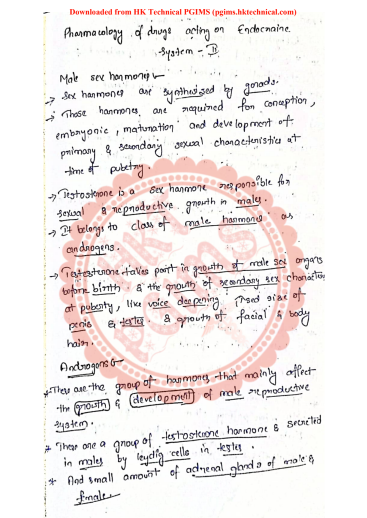 Downloaded from HK Technical PGIMS (pgims.hktechnical.com)
Pharmacology of drugs acting on Endocraine
System - II
Male sex hormones
→ Sex hormones are synthesized by gonads.
→ Those hormones are required for conception,
embryonic, maturation and development of
primary & secondary sexual characteristics at
time of pubetry.
→ Testosterone is a sex hormone responsible for
sexual & reproductive growth in males.
→ It belongs to class of male hormones as
androgens.
→ Testesterone takes part in growth of male sex organs
before birth & the growth of secondary sex character
at puberty, like voice deepening, size of
penis & testes. & growth of facial & body
hair.
Androgons
* These are the group of hormones that mainly affect
the growth & development of male reproductive
system.
* These are a group of testosterone hormone & secreted
in males by leydig cells in testes.
* And small amount of adrenal glands of male &
female